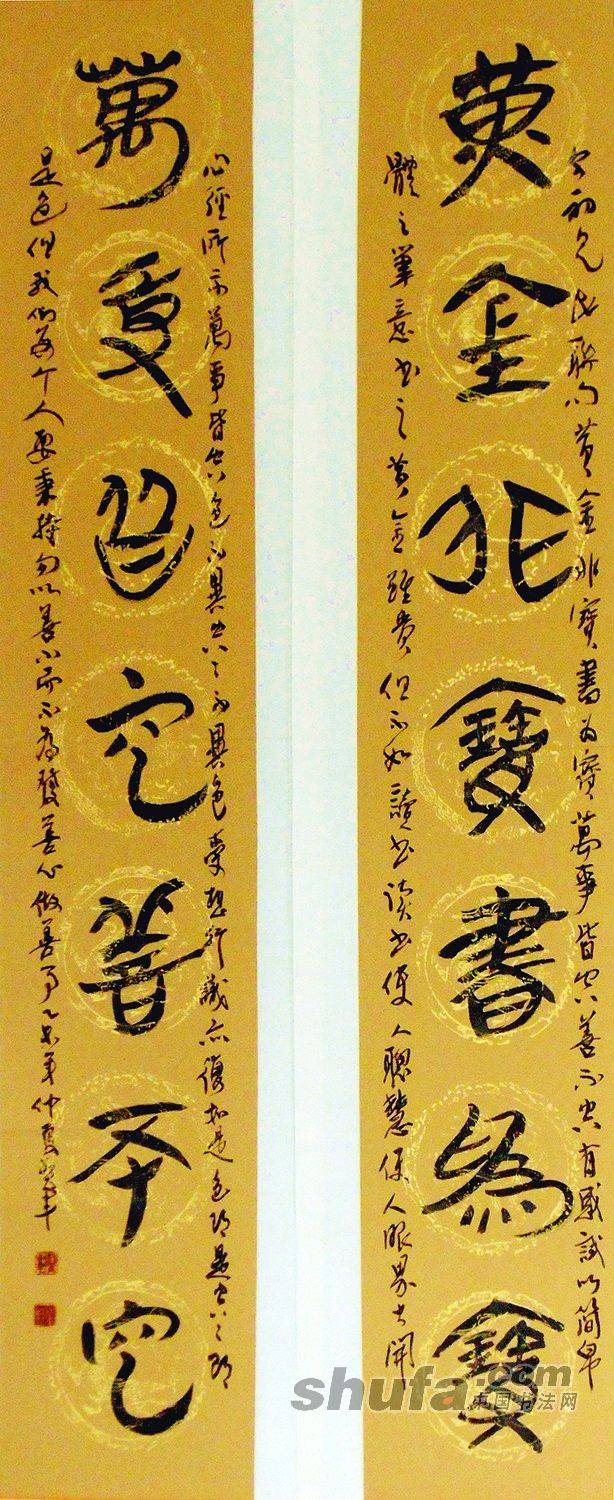 黄金非寶書為寶
初見此聯句黄金非寶書為寶萬事皆空善不空有感試以簡帛
體之筆意書之黄金雖貴但不如讀書读書使人聰慧使人眼界大開
萬事皆空善不空
心經所示萬事皆空色不異空々不異色受想行識亦復如是色即是空々即
是色但我们每个人要秉持勿以善小而不為發善心做善事乙未年仲夏
shufa.com
中国书法网